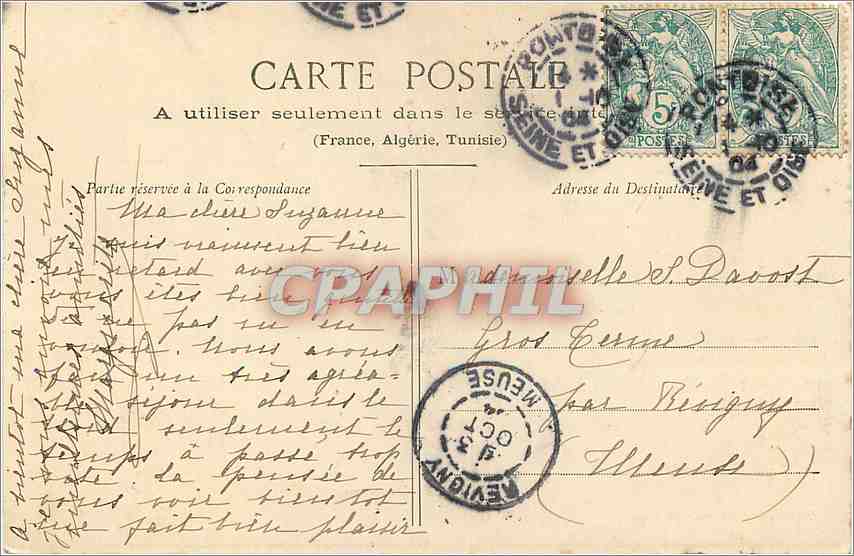 CARTE POSTALE
A utiliser seulement dans le service inte
(France, Algérie, Tunisie)
Partie réservée à la Correspondance
Adresse du Destinataire
Ma chère Suzanne
Je suis vraiment bien
en retard avec vous
vous êtes bien
ne pas m'en
Nous avons
fait un très agréa-
séjour dans le
seulement le
temps à passé trop
vite. La pensée de
vous voir bientot
me fait bien plaisir
A bientot ma chère Suzanne
Mademoiselle S. Davost
Gros Terme
par Révigny
(Meuse)
CPAPHIL
PONTOISE
SEINE ET OISE
PONTOISE
SEINE ET OISE
04
REVIGNY
3
OCT
MEUSE
5
POSTES
POSTES